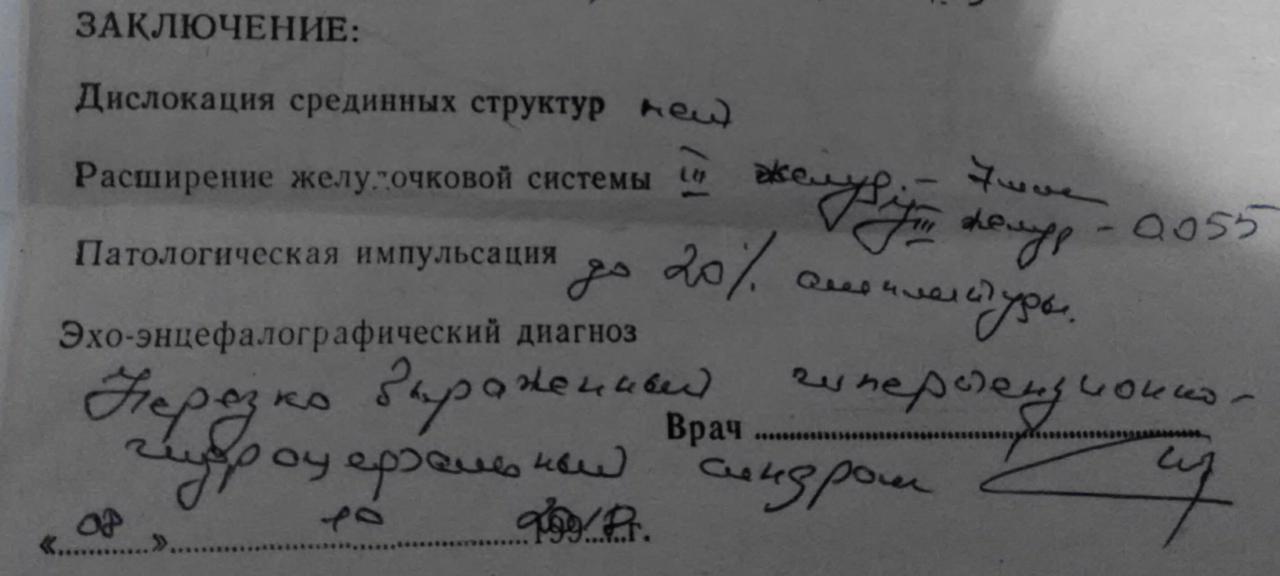 ЗАКЛЮЧЕНИЕ:
Дислокация срединных структур нет
Расширение желудочковой системы III желуд. – 7мм
III желуд – 0.055
Патологическая импульсация до 20% амплитуды.
Эхо-энцефалографический диагноз
Нерезко выраженный гипертензионно-
Врач
гидроцефальный синдром
« 08 » 10 г.